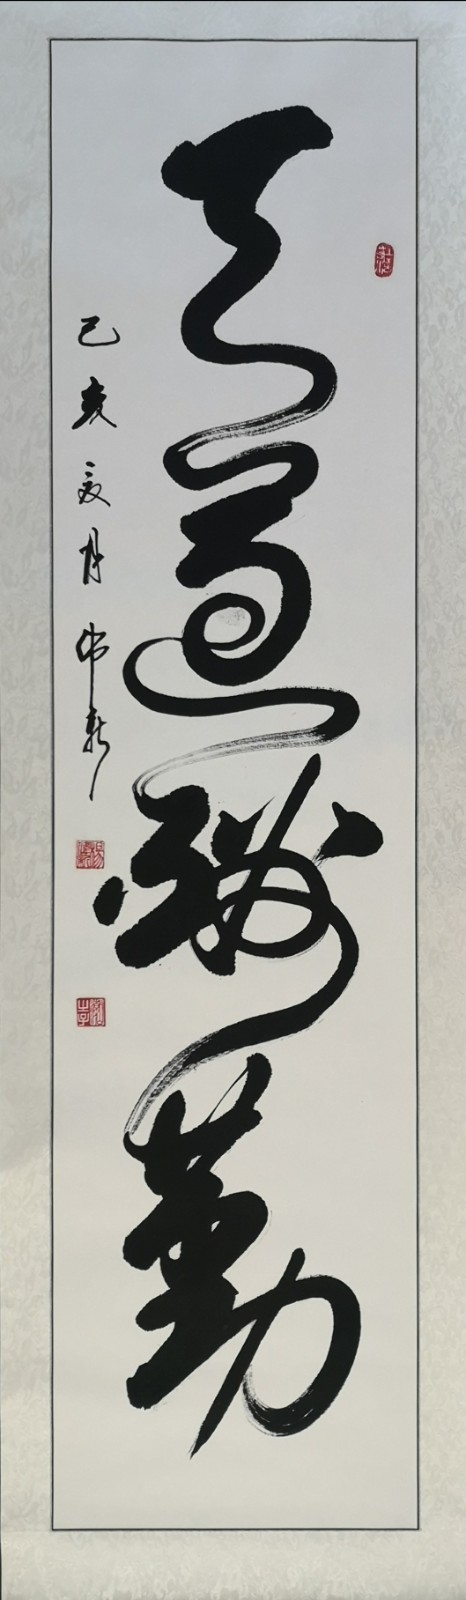 天道酬勤
己亥夏月